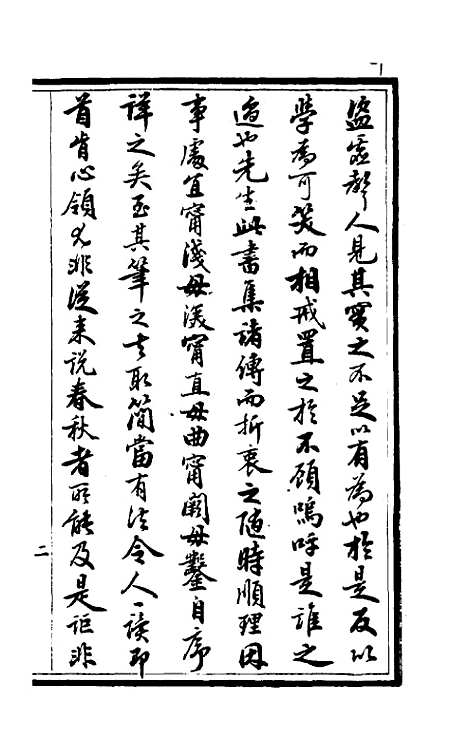 盜虛聲人見其實之不足以有為也於是反以
學為可笑而相戒置之於不顧嗚呼是誰之
過也先生此書集諸傳而折衷之隨時順理因
事處宜甯淺毋深甯直毋曲甯闕毋鑿自序
詳之矣至其筆之去取簡當有法令人一讀即
首肯心領尤非從來說春秋者所能及是詎非
二